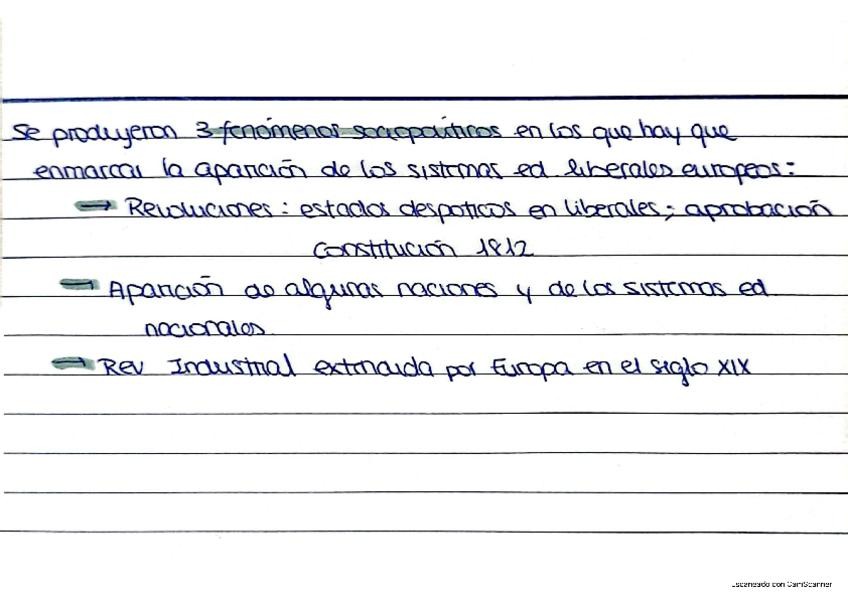 Se produjeron 3 fenómenos sociopolíticos en los que hay que
enmarcar la aparición de los sistemas ed liberales europeos:
→ Revoluciones: estados despoticos en liberales; aprobación
Constitución 1812
→ Aparición de algunas naciones y de los sistemas ed
nacionales
→ Rev Industrial extendida por Europa en el siglo XIX
Escaneado con CamScanner